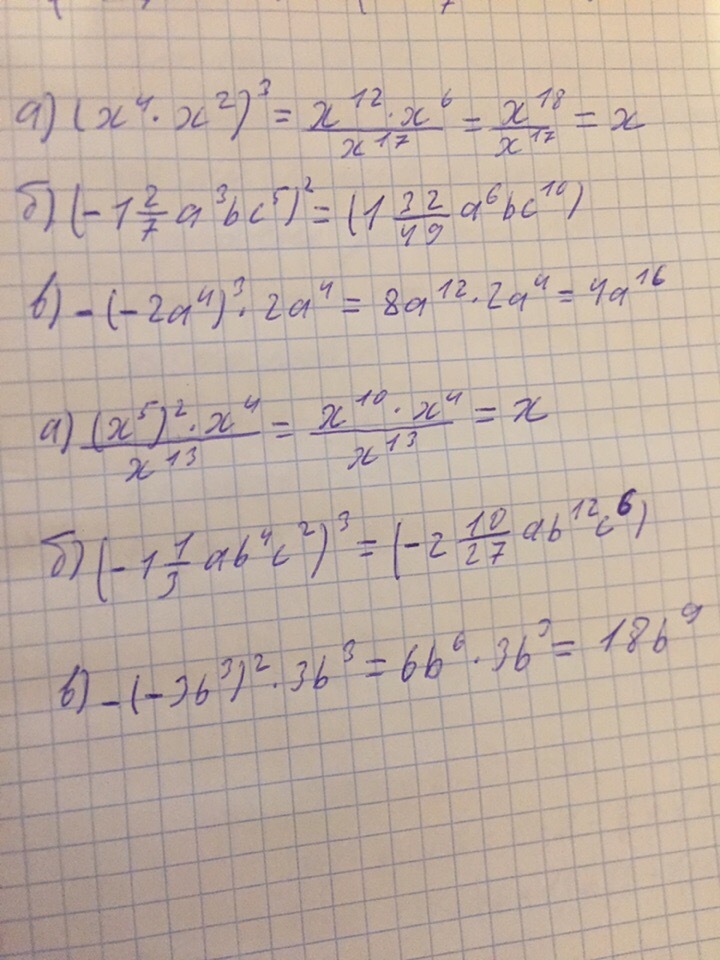 а) (x⁴ · x²)³ = x¹² · x⁶ / x¹⁷ = x¹⁸ / x¹⁷ = x
б) (-1 2/7 a³bc⁵)² = (1 32/49 a⁶bc¹⁰)
в) -(-2a⁴)³ · 2a⁴ = 8a¹² · 2a⁴ = 4a¹⁶
а) (x⁵)² · x⁴ / x¹³ = x¹⁰ · x⁴ / x¹³ = x
б) (-1 1/3 ab⁴c²)³ = (-2 10/27 ab¹²c⁶)
в) -(-3b³)² · 3b³ = 6b⁶ · 3b³ = 18b⁹